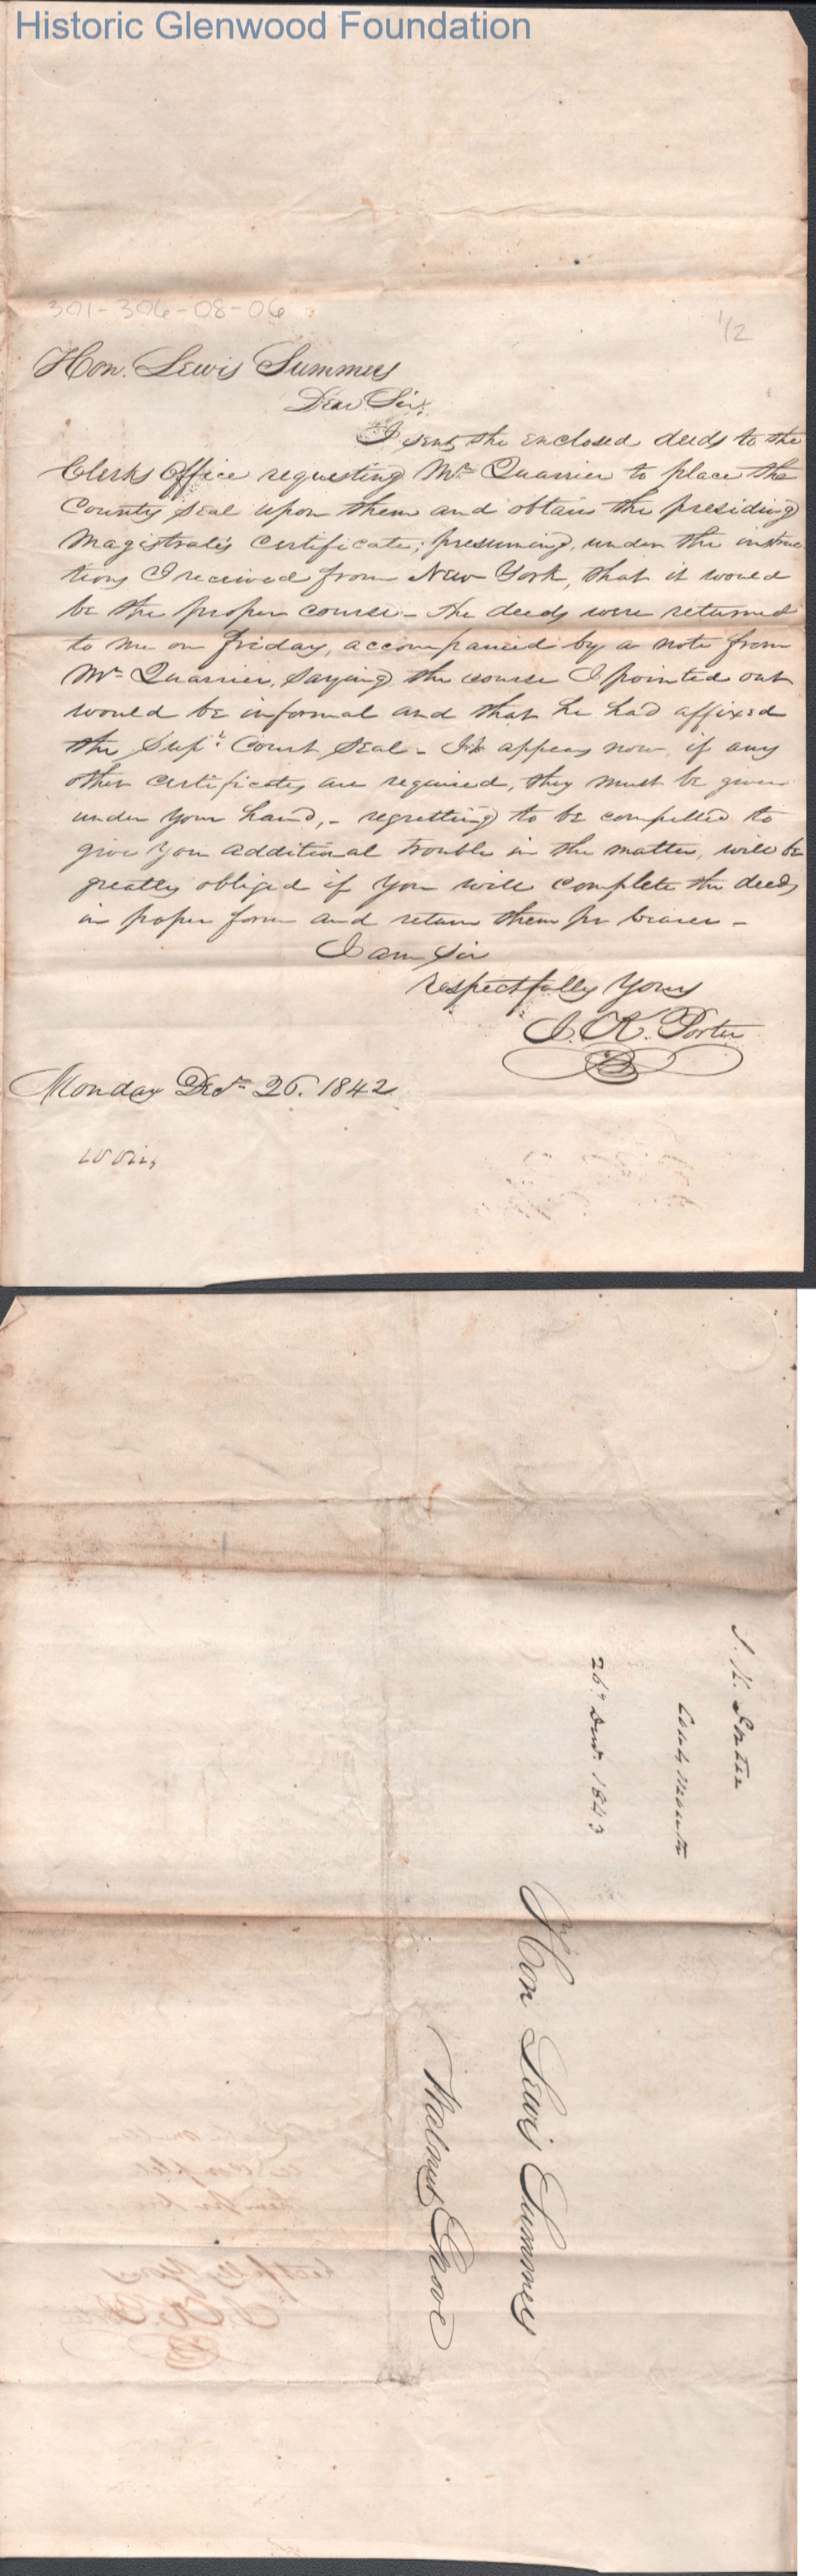 Historic Glenwood Foundation
301-306-08-06
1/2
Hon. Lewis Summers
Dear Sir,
I sent the enclosed deeds to the
Clerks Office requesting Mr Quarrier to place the
County Seal upon them and obtain the presiding
Magistrate's Certificate; presuming, under the instruc
tions I received from New York, that it would
be the proper course - the deeds were returned
to me on friday, accompanied by a note from
Mr Quarrier, saying the course I pointed out
would be informal and that he had affixed
the Supr. Court Seal - It appears now, if any
other certificates are required, they must be given
under your hand, - regretting to be compelled to
give you additional trouble in the matter, will be
greatly obliged if you will complete the deeds
in proper form and return them pr bearer -
I am Sir
respectfully Yours
J. K. Porter
Monday Decr 26. 1842
J. K. Porter
26th Decr. 1842
Hon Lewis Summers
Walnut Grove